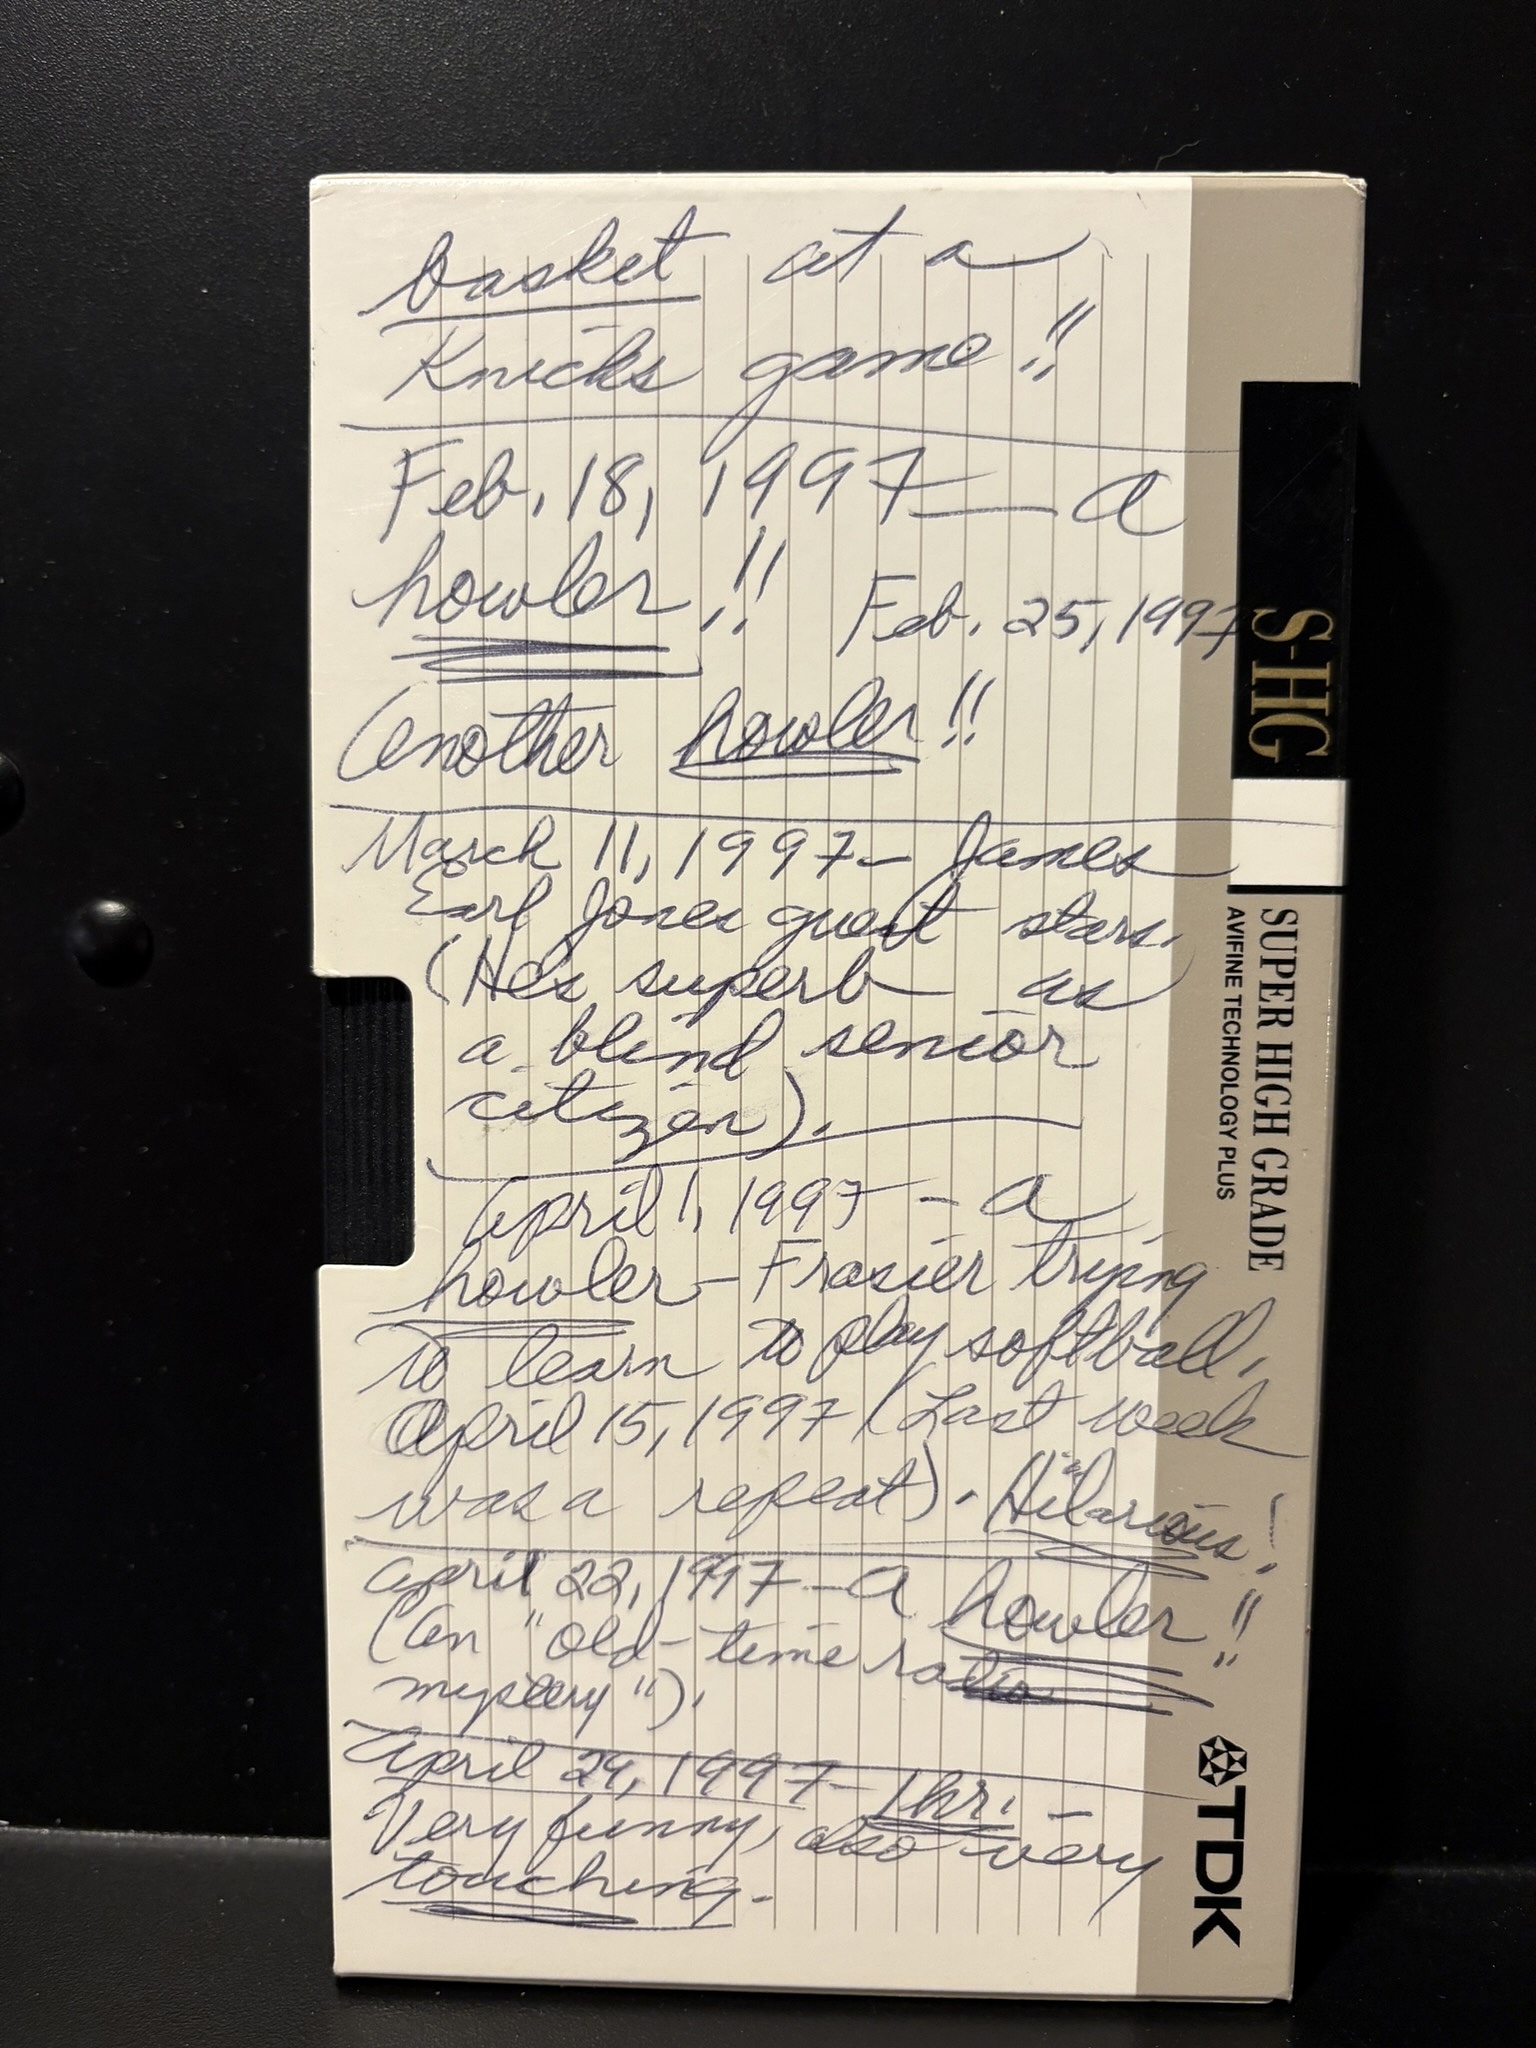 basket at a
Knicks game!!
Feb. 18, 1997 — a
howler!! Feb. 25, 1997
Another howler!!
March 11, 1997 — James
Earl Jones guest stars.
(He's superb as
a blind senior
citizen).
April 1, 1997 - a
howler - Frasier trying
to learn to play softball.
April 15, 1997 (Last week
was a repeat). Hilarious!
April 22, 1997 - A howler!!
(An "old-time radio
mystery").
April 29, 1997 - 1 hr. -
Very funny, also very
touching.
S-HG
SUPER HIGH GRADE
AVIFINE TECHNOLOGY PLUS
TDK